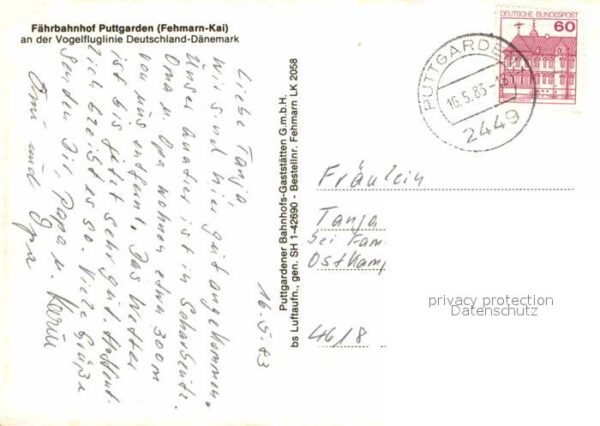 Fährbahnhof Puttgarden (Fehmarn-Kai)
an der Vogelfluglinie Deutschland-Dänemark
Liebe Tanja
Wir sind hier gut angekommen.
Unser Quatier ist in Scharbeutz.
Oma u. Opa wohnen etwa 300m
von uns entfernt. Das Wetter
ist bis jetzt sehr gut. Hoffent-
lich bleibt es so. Viele Grüße
senden Dir Papa u. Karin
Omi und Opa
16.5.83
Puttgardener Bahnhofs-Gaststätten G.m.b.H.
bs Luftaufn., gen. SH 1-42690 - Bestellnr. Fehmarn LK 2058
DEUTSCHE BUNDESPOST
60
PUTTGARDEN
16.5.83
2449
Fräulein
Tanja
bei Fam
Ostkam
4618
privacy protection
Datenschutz